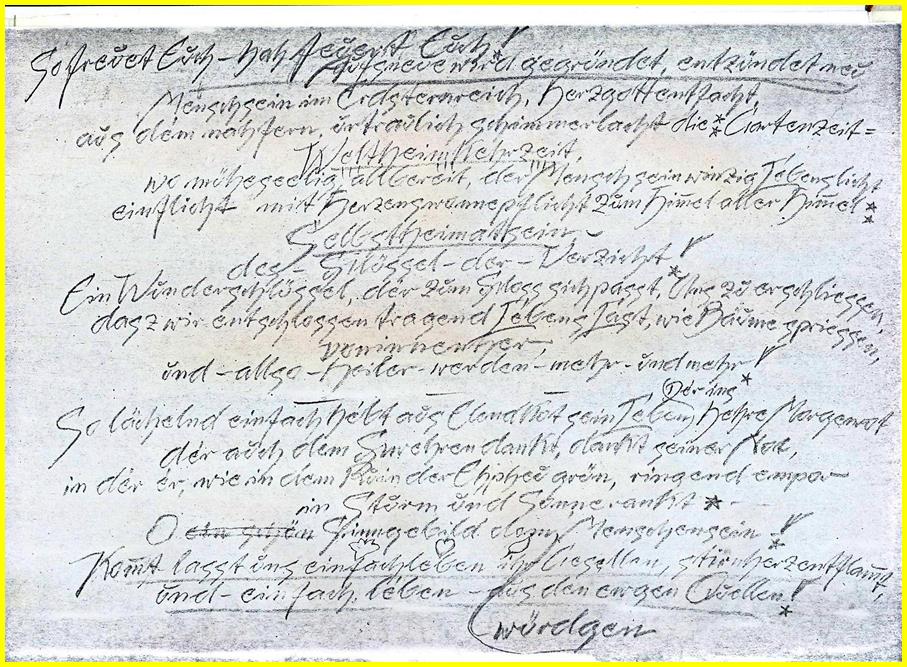 So freuet Euch - hah feyert Euch!
Aufsneue wird gegründet, entzündet neu
Menschsein im Erdsternreich, Herzgottentfacht,
aus dem nahfern, urtraulich schimmerlacht die Gartenzeit=
Weltheimkehrzeit,
wo müheseelig allbereit, der Mensch sein winzig Lebenslicht
einflicht mit Herzenswonnepflicht zum Himel aller Himel
Selbstheimatsein,
des - Slüssel - der - Verzicht!
Ein Wunderschlüssel, der zum Sloss sich passt, Uns zu erschliessen,
dasz wir entschlossen tragend Lebens Last, wie Bäume spriessen,
voninnenher,
und - allso - heiler - werden - mehr - und mehr!
Der ins
So lächelnd einfach hebt aus Elend Kot sein Leben, hehre Morgenrot
der auch dem dankt, dankt seiner Not,
in der er, wie in dem der Epheu grün, ringend empor
in Sturm und Sonne rankt
O ein schön Sinngebild dem Menschensein!
Komt lasst uns einfachleben ihr Gesellen, stirnherzentflamt,
und - einfach leben - aus den ewgen Quellen!
würdgen